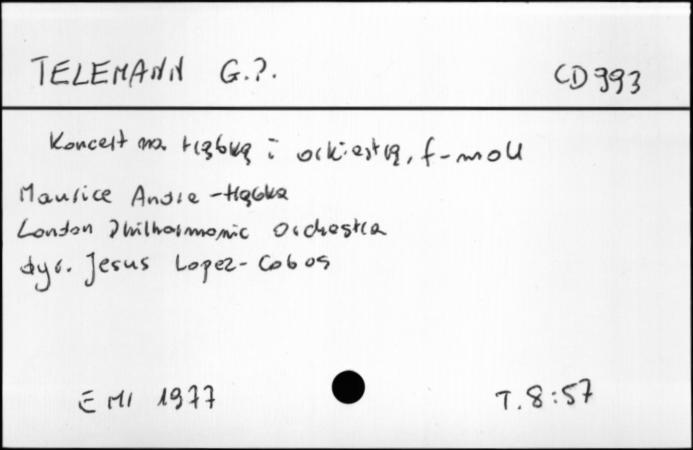 TELEMANN G.P. CD 993
Koncert na trąbkę i orkiestrę, f-moll
Maurice Andre - trąbka
London Philharmonic Orchestra
dyr. Jesus Lopez-Cobos
EMI 1977 T. 8:57